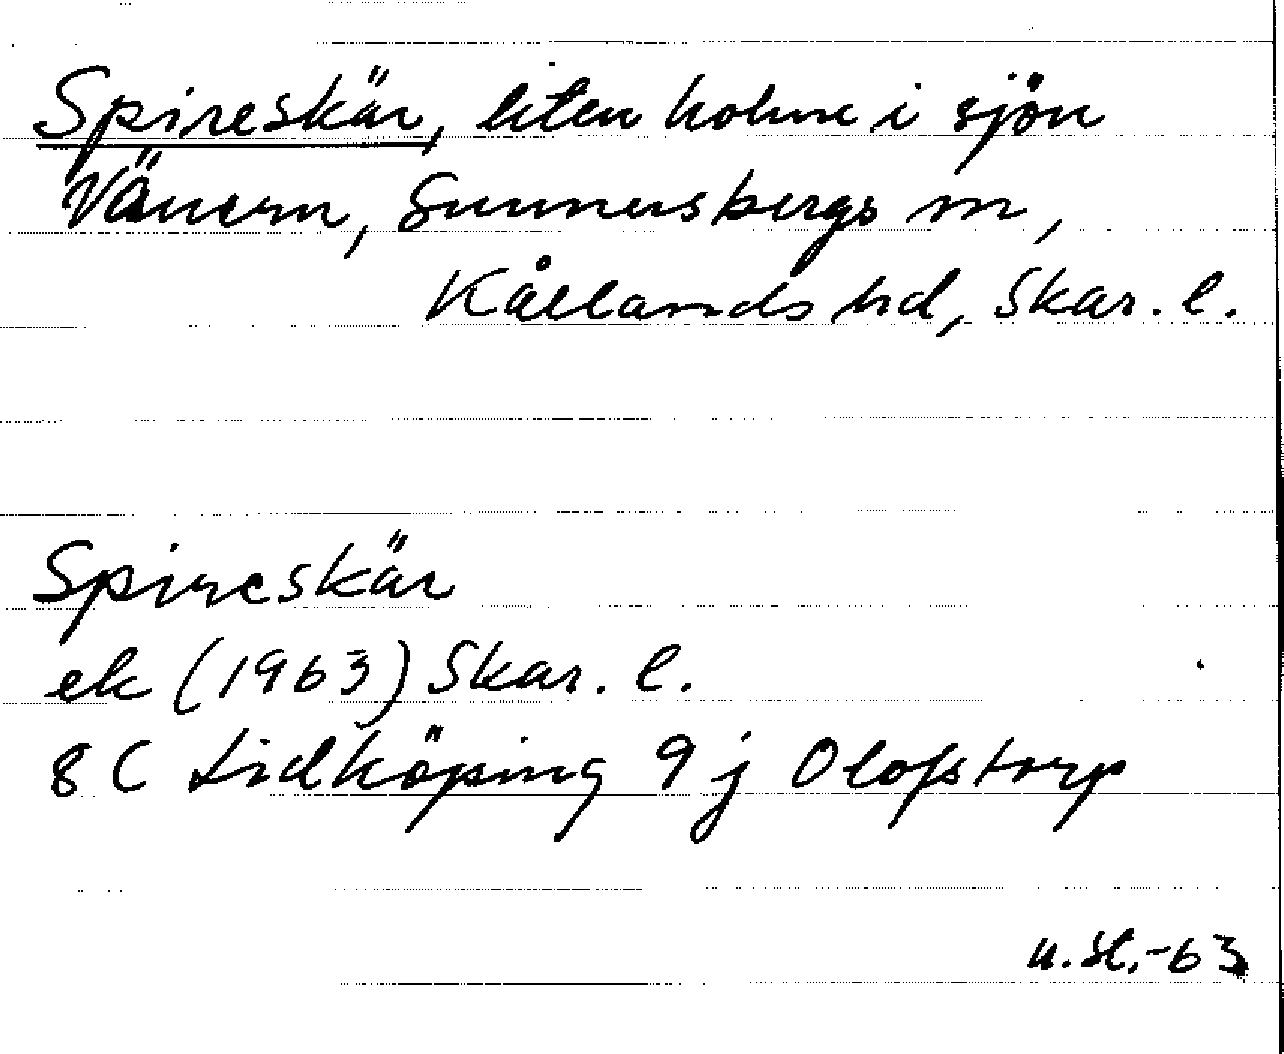 Spireskär, liten holme i sjön
Vänern, Sunnersbergs sn,
Kållands hd, Skar. l.
Spireskär
ek (1963) Skar. l.
8 C Lidköping 9 j Olofstorp
-63